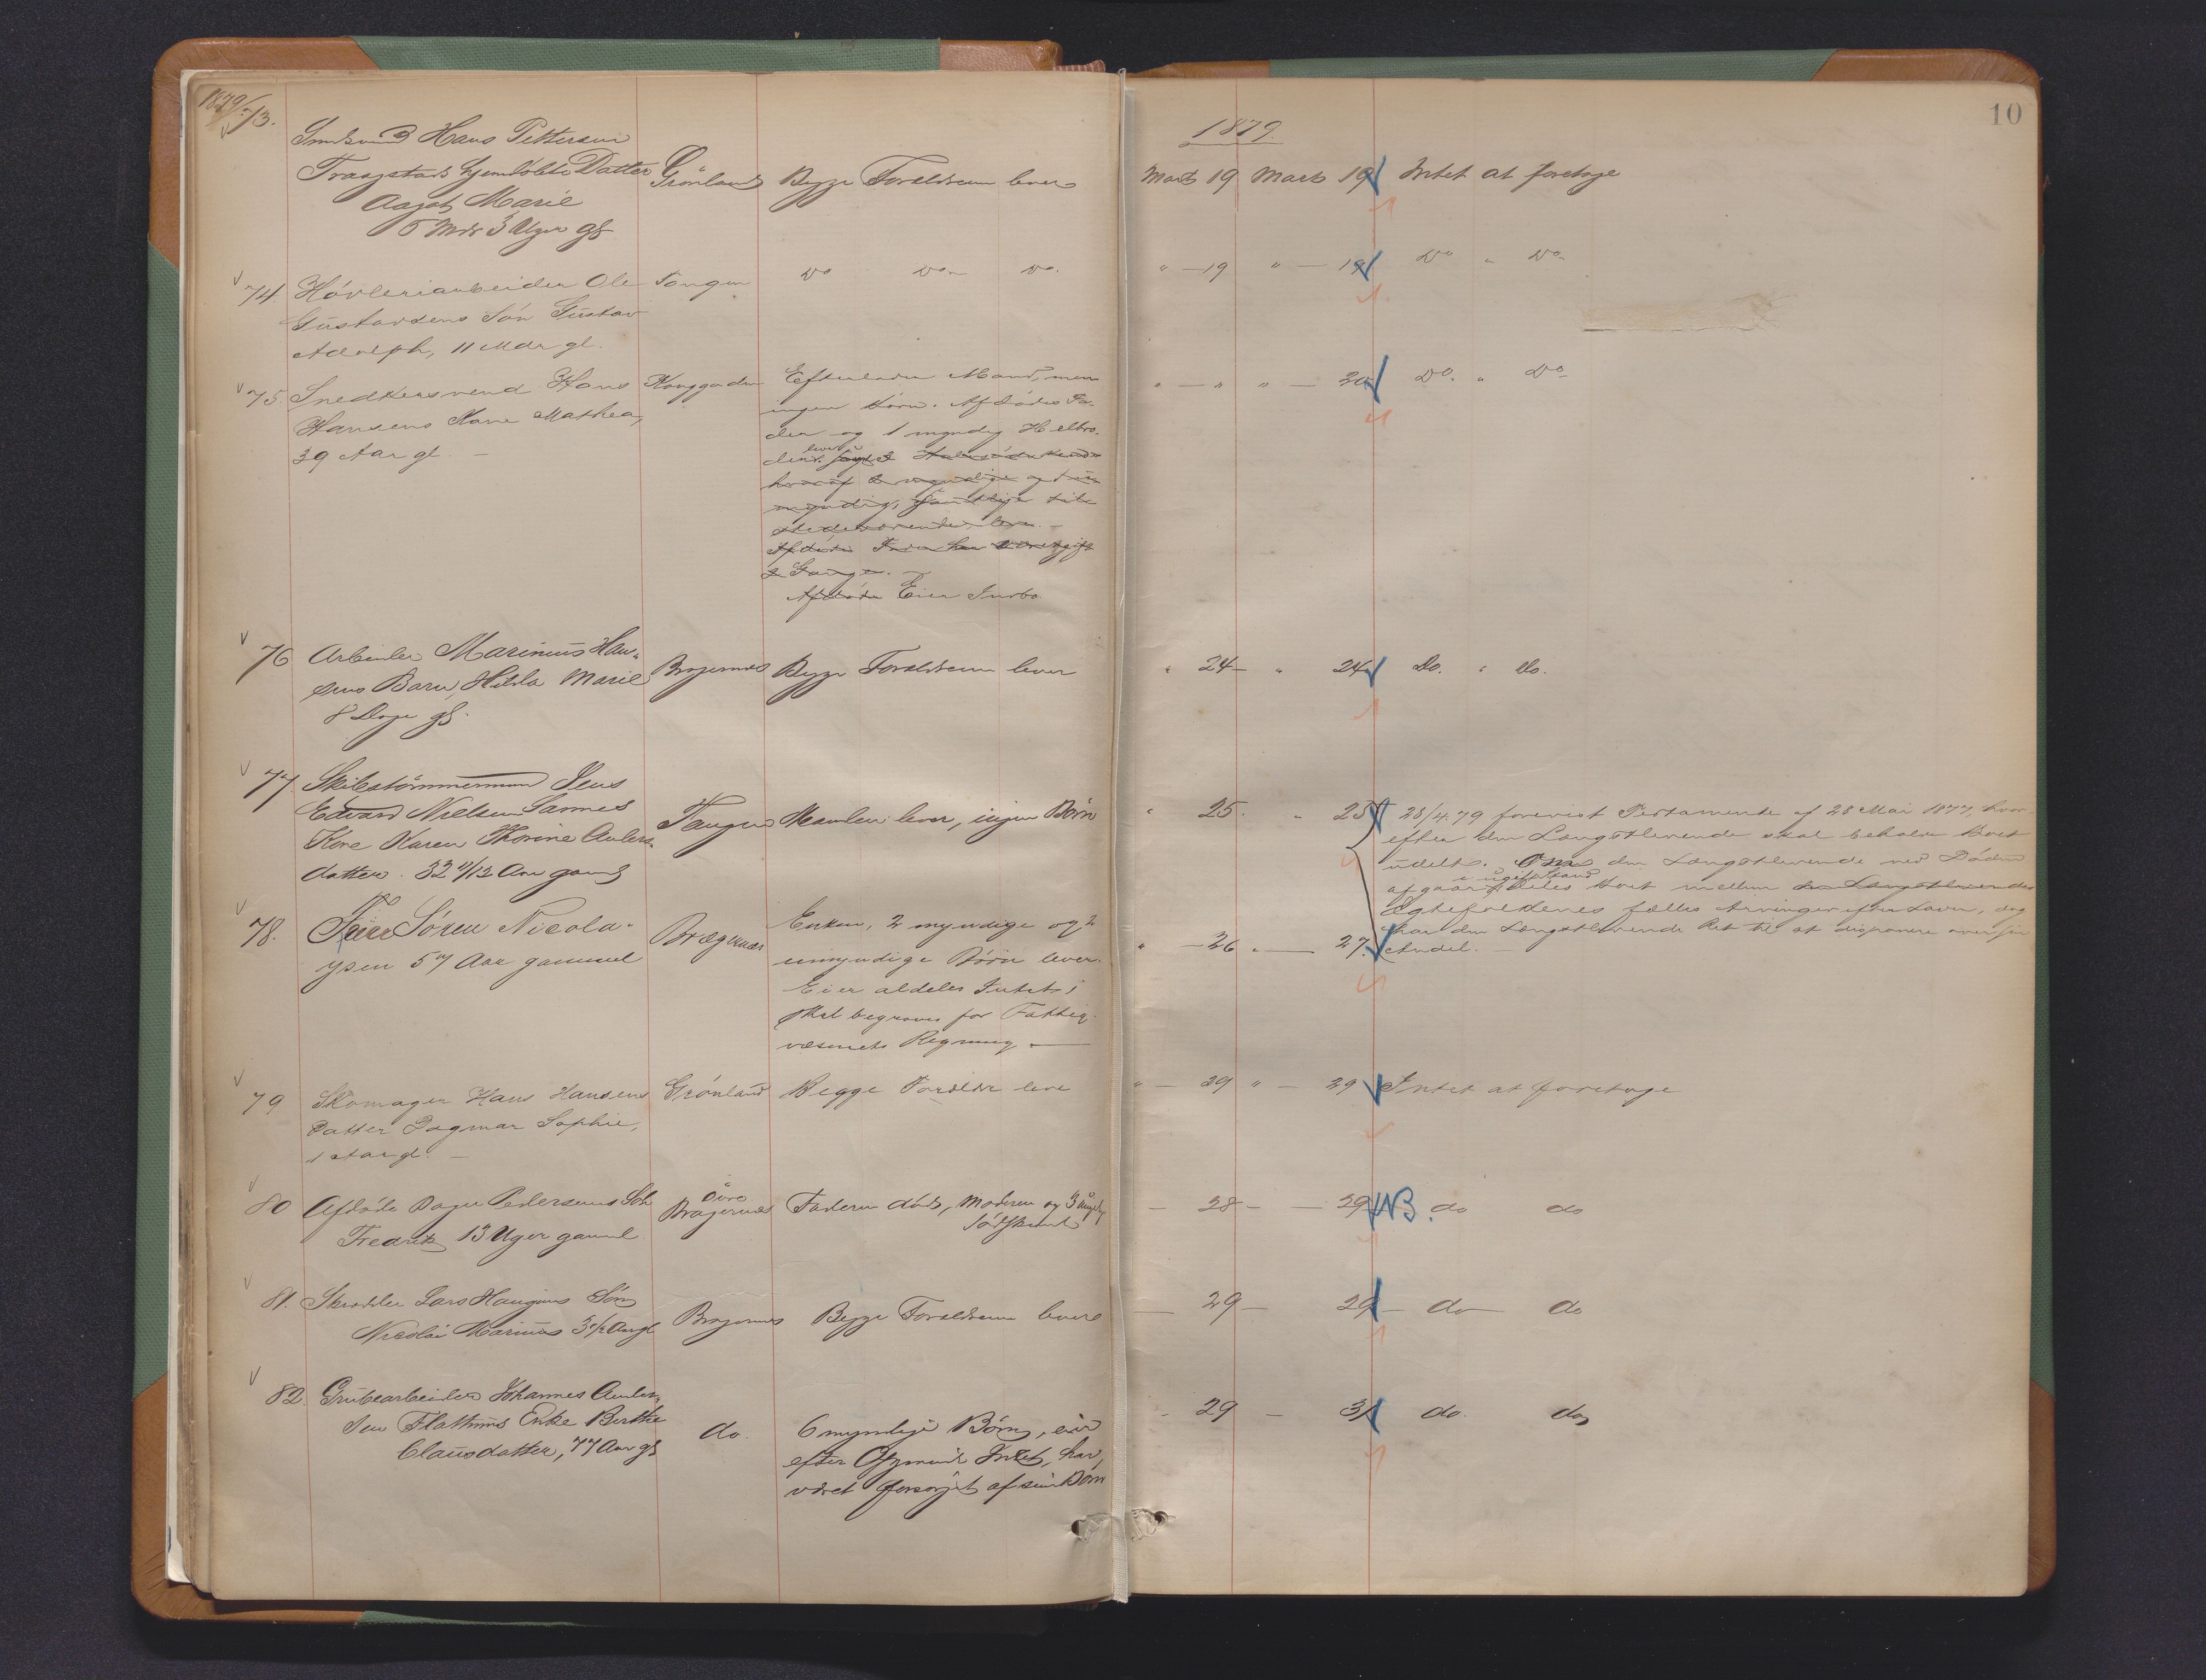 1879/73.
Hans Pettersen
Tragstads hjemdøbte Datter
Aagot Marie
5 Mdr 3 Uger gl
Grønland
Begge Forældrene lever
74 Høvleriarbeider Ole
Gustavsens Søn Gustav
Adolph, 11 Mdr gl.
Tangen
Do Do Do.
75. Snedkersvend Hans
Hansens Kone Mathea,
39 Aar gl. –
Konggaden
Efterlader Mand, men
ingen Børn. Afdødes Fa-
der og 1 myndig Helbro-
der lever
hvoraf 2 myndige og 1 u
myndig, samtlige til
stedeværende, lever. –
Afdøde har været gift
2 Gange. –
Afdøde Eier Indbo
76 Arbeider Marinius Han-
sens Barn, Hilda Marie
8 Dage gl.
Bragernæs
Begge Forældrene lever
77 Skibstømmermand Jens
Edvard Nielsen Sannes
Kone Karen Thorine Anders-
datter. 32 11/12 Aar gaml
Tangen
Manden lever, ingen Børn
78. Søren Nicola-
ysen 57 Aar gammel
Bragernæs
Enken, 2 myndige og 2
umyndige Børn lever.
Eier aldeles Intet;
skal begraves for Fattig-
væsenets Regning –
79 Skomager Hans Hansens
Datter Dagmar Sophie,
1 Aar gl. –
Grønland
Begge Forældre leve
80 Afdøde Pedersens Søn
Fredrik 13 Uger gammel
Øvre
Bragernæs
Faderen død, Moderen og 3
Sødskende
81. Skrædder Lars Haugens Søn
Nicolai Marinus 3 1/2 Aar gl
Bragernæs
Begge Forældrene lever
82 Grubearbeider Johannes Anders-
sen Flathus Enke Berthe
Clausdatter, 77 Aar gl
do.
6 myndige Børn, eier
efter Opgivende Intet, har
været forsørget af sine Børn
10
1879
Marts 19 Marts 19 Intet at foretage
" – 19 " – 19 Do " Do
" – " " – 20 Do. " Do
" 24 – " 24 Do. " Do.
" 25. " 25 28/4 79 forevist Testamente af 28 Mai 1877, hvor-
efter den Længstlevende skal beholde Boet
udelt. Om den Længstlevende ved Døden
i ugift Stand
afgaar, deles Boet mellem den Længstlevendes
Ægtefolkenes fælles Arvinger efter Loven, dog
har den Længstlevende Ret til at disponere over sin
Andel. –
" – 26 " – 27.
" – 29 " – 29 Intet at foretage
– 28 – – 29 NB. do do
– 29 – 29 – do do
– 29 – 31 do. do